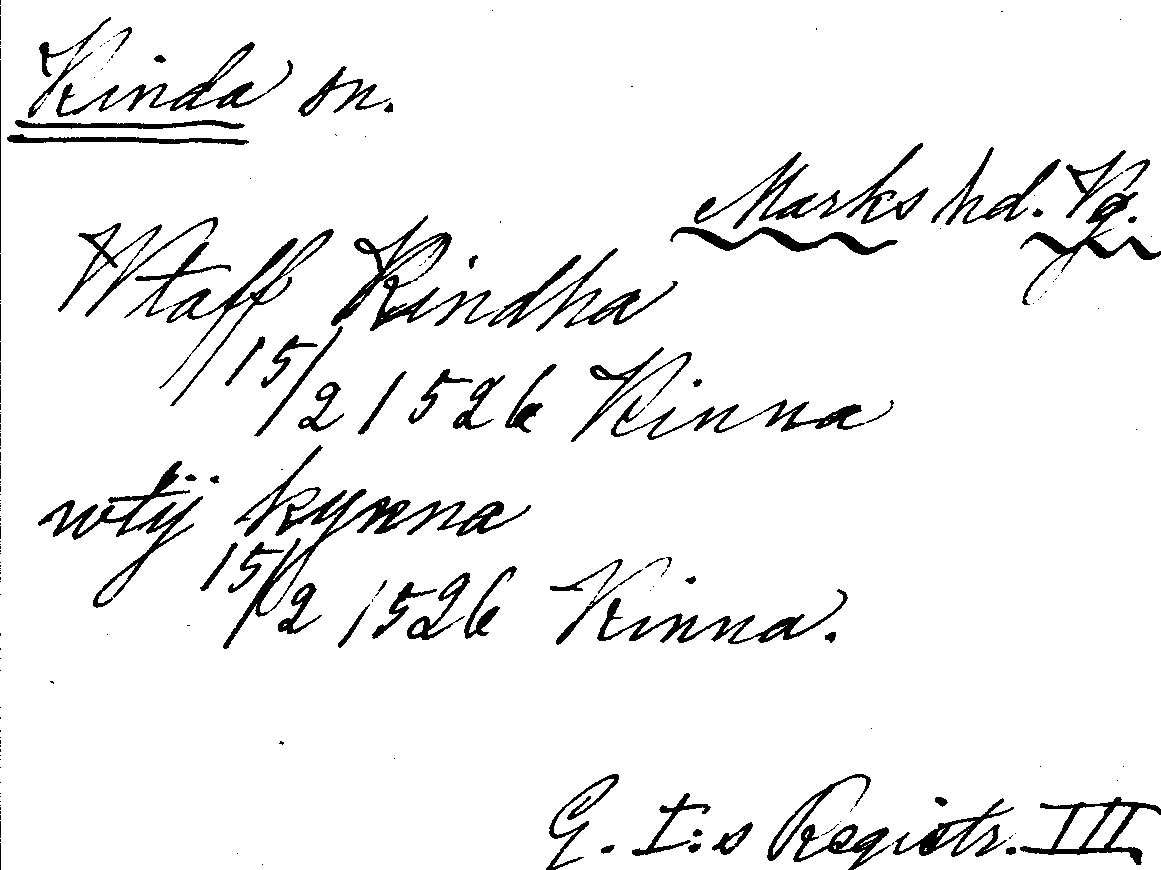 Kinda sn.
Marks hd. Vg.
Wtaff Kindha
15/2 1526 Kinna
wtÿ kynna
15/2 1526 Kinna.
G. I:s Registr. III.